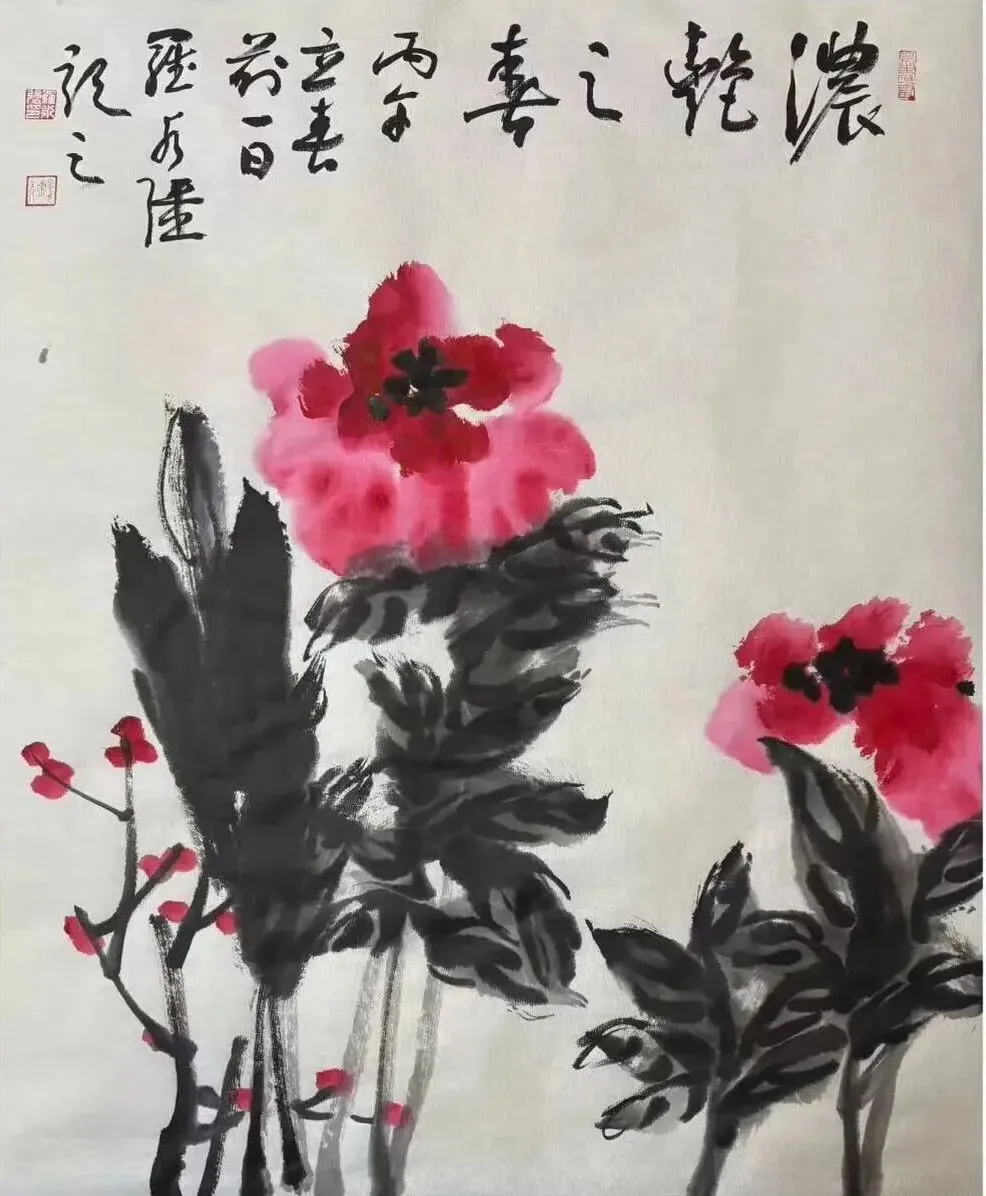 濃艷之春
丙午
立春
前一日
羅陸
題之